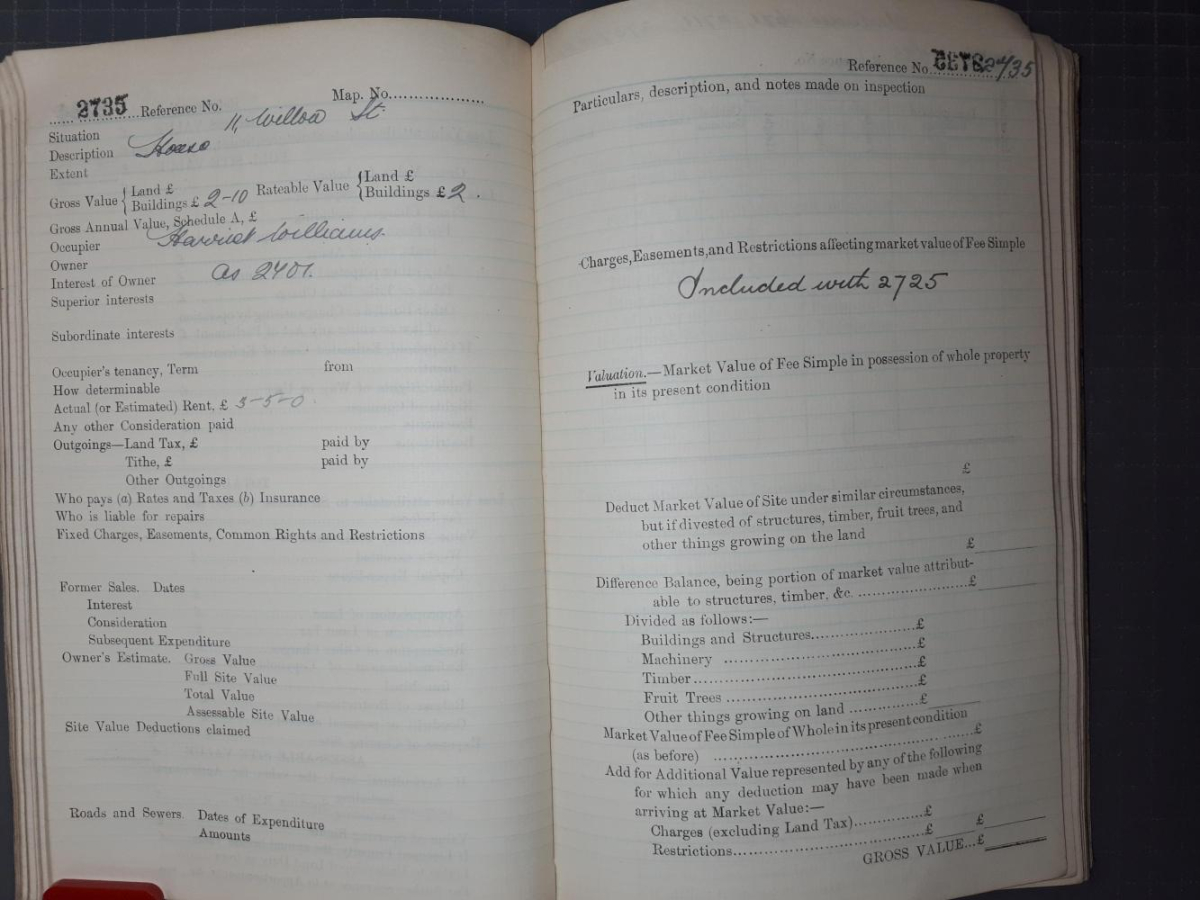 2735 Reference No. Map. No.
Situation 11, Willow St
Description House
Extent
Gross Value { Land £ Rateable Value { Land £
Buildings £ 2-10 Buildings £ 2.
Gross Annual Value, Schedule A, £
Occupier Harriet Williams.
Owner
Interest of Owner as 2401.
Superior interests
Subordinate interests
Occupier's tenancy, Term from
How determinable
Actual (or Estimated) Rent, £ 3-5-0.
Any other Consideration paid
Outgoings—Land Tax, £ paid by
Tithe, £ paid by
Other Outgoings
Who pays (a) Rates and Taxes (b) Insurance
Who is liable for repairs
Fixed Charges, Easements, Common Rights and Restrictions
Former Sales. Dates
Interest
Consideration
Subsequent Expenditure
Owner's Estimate. Gross Value
Full Site Value
Total Value
Assessable Site Value
Site Value Deductions claimed
Roads and Sewers. Dates of Expenditure
Amounts
Reference No.
Particulars, description, and notes made on inspection
Charges, Easements, and Restrictions affecting market value of Fee Simple
Included with 2725
Valuation.—Market Value of Fee Simple in possession of whole property
in its present condition
£
Deduct Market Value of Site under similar circumstances,
but if divested of structures, timber, fruit trees, and
other things growing on the land £
Difference Balance, being portion of market value attribut-
able to structures, timber, &c. £
Divided as follows:—
Buildings and Structures £
Machinery £
Timber £
Fruit Trees £
Other things growing on land £
Market Value of Fee Simple of Whole in its present condition
(as before) £
Add for Additional Value represented by any of the following
for which any deduction may have been made when
arriving at Market Value:—
Charges (excluding Land Tax) £
Restrictions £ £
GROSS VALUE...£